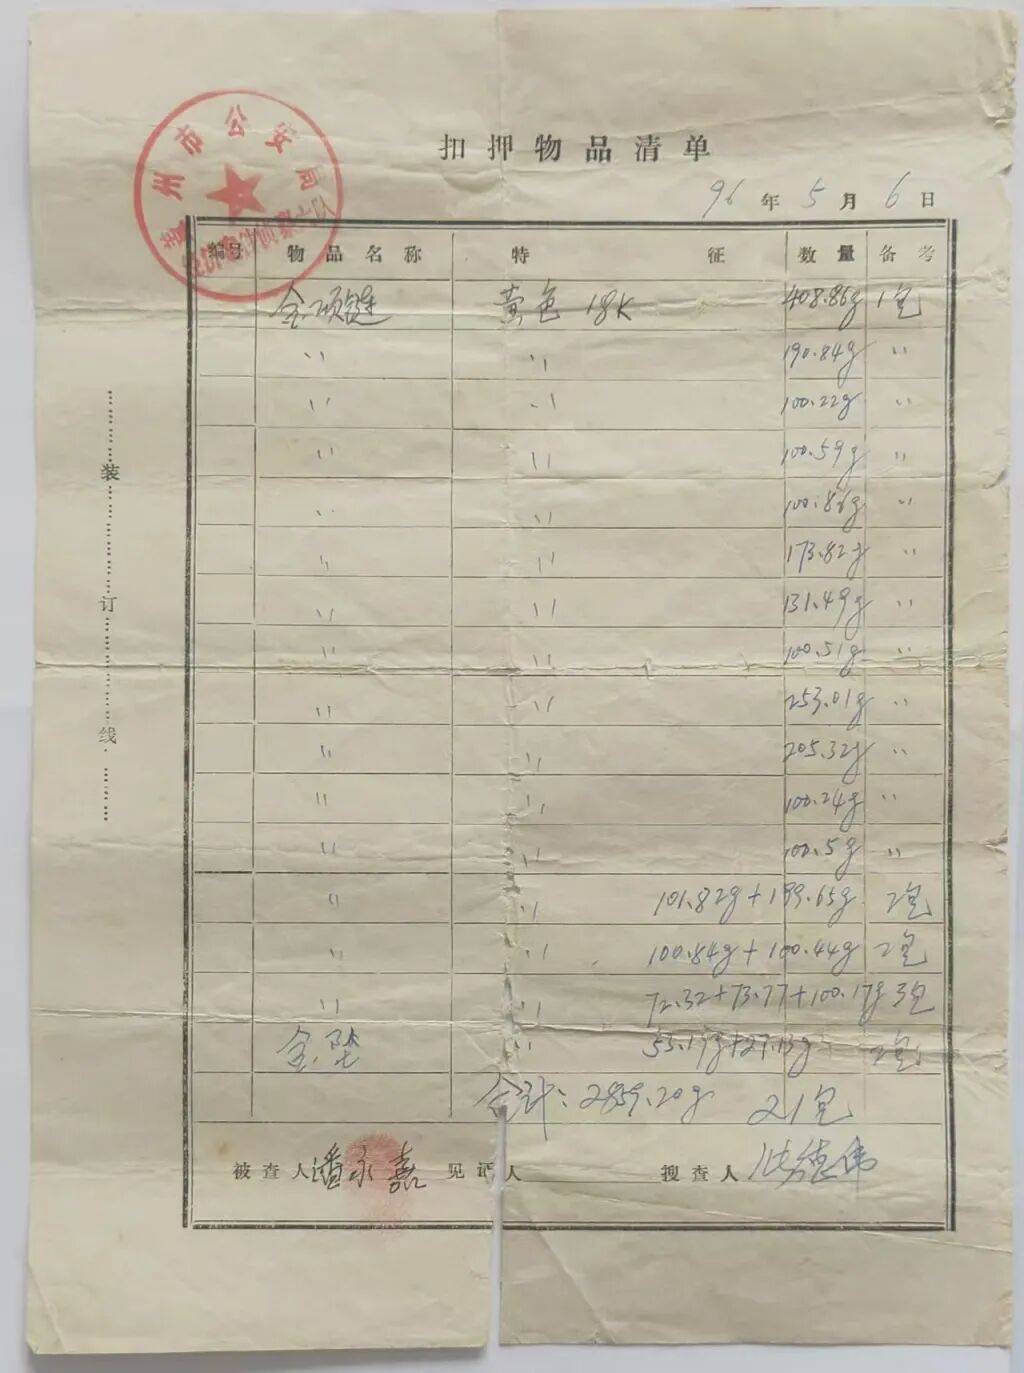 扣押物品清单
州市公安局
96年5月6日
编号 物品名称 特征 数量 备考
金项链 黄色 18K 408.86g 1包
〃 〃 190.84g 〃
〃 〃 100.22g 〃
〃 〃 100.59g 〃
〃 〃 100.86g 〃
〃 〃 173.82g 〃
〃 〃 131.49g 〃
〃 〃 100.51g 〃
〃 〃 253.01g 〃
〃 〃 205.32g 〃
〃 〃 100.24g 〃
〃 〃 100.5g 〃
〃 〃 101.82g+199.65g 2包
〃 〃 100.84g+100.44g 2包
〃 〃 72.32+73.77+100.17g 3包
金坠 〃 2包
合计:2859.20g 21包
被查人 潘永嘉 见证人 搜查人
装订线